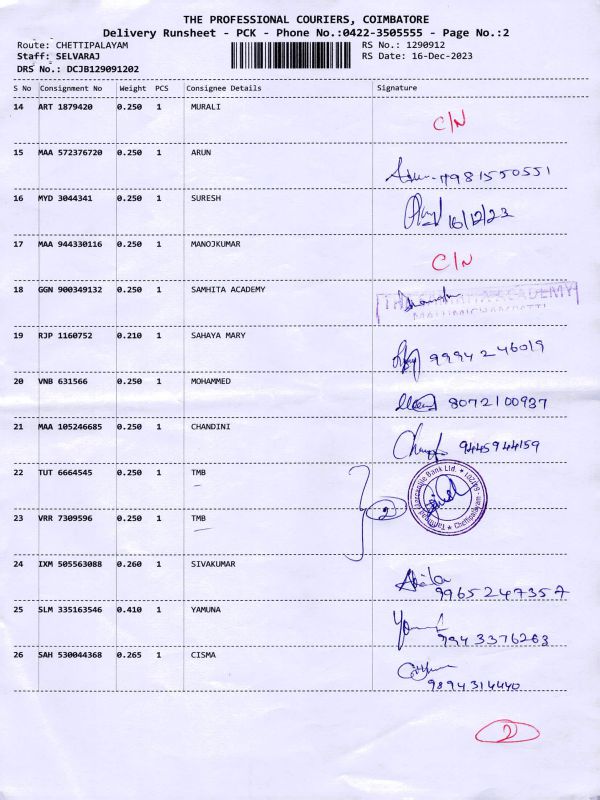 THE PROFESSIONAL COURIERS, COIMBATORE
Delivery Runsheet - PCK - Phone No.:0422-3505555 - Page No.:2
Route: CHETTIPALAYAM RS No.: 1290912
Staff: SELVARAJ RS Date: 16-Dec-2023
DRS No.: DCJB129091202
S No Consignment No Weight PCS Consignee Details Signature
14 ART 1879420 0.250 1 MURALI C/N
15 MAA 572376720 0.250 1 ARUN 7981550551
16 MYD 3044341 0.250 1 SURESH 16/12/23
17 MAA 944330116 0.250 1 MANOJKUMAR C/N
18 GGN 900349132 0.250 1 SAMHITA ACADEMY ACADEMY
19 RJP 1160752 0.210 1 SAHAYA MARY 9994246019
20 VNB 631566 0.250 1 MOHAMMED 8072100937
21 MAA 105246685 0.250 1 CHANDINI 9445944159
22 TUT 6664545 0.250 1 TMB
2
Tamilnad Mercantile Bank Ltd. Chettipalayam - 641201
23 VRR 7309596 0.250 1 TMB
24 IXM 505563088 0.260 1 SIVAKUMAR
9965247357
25 SLM 335163546 0.410 1 YAMUNA
9943376263
26 SAH 530044368 0.265 1 CISMA
9894314440
2